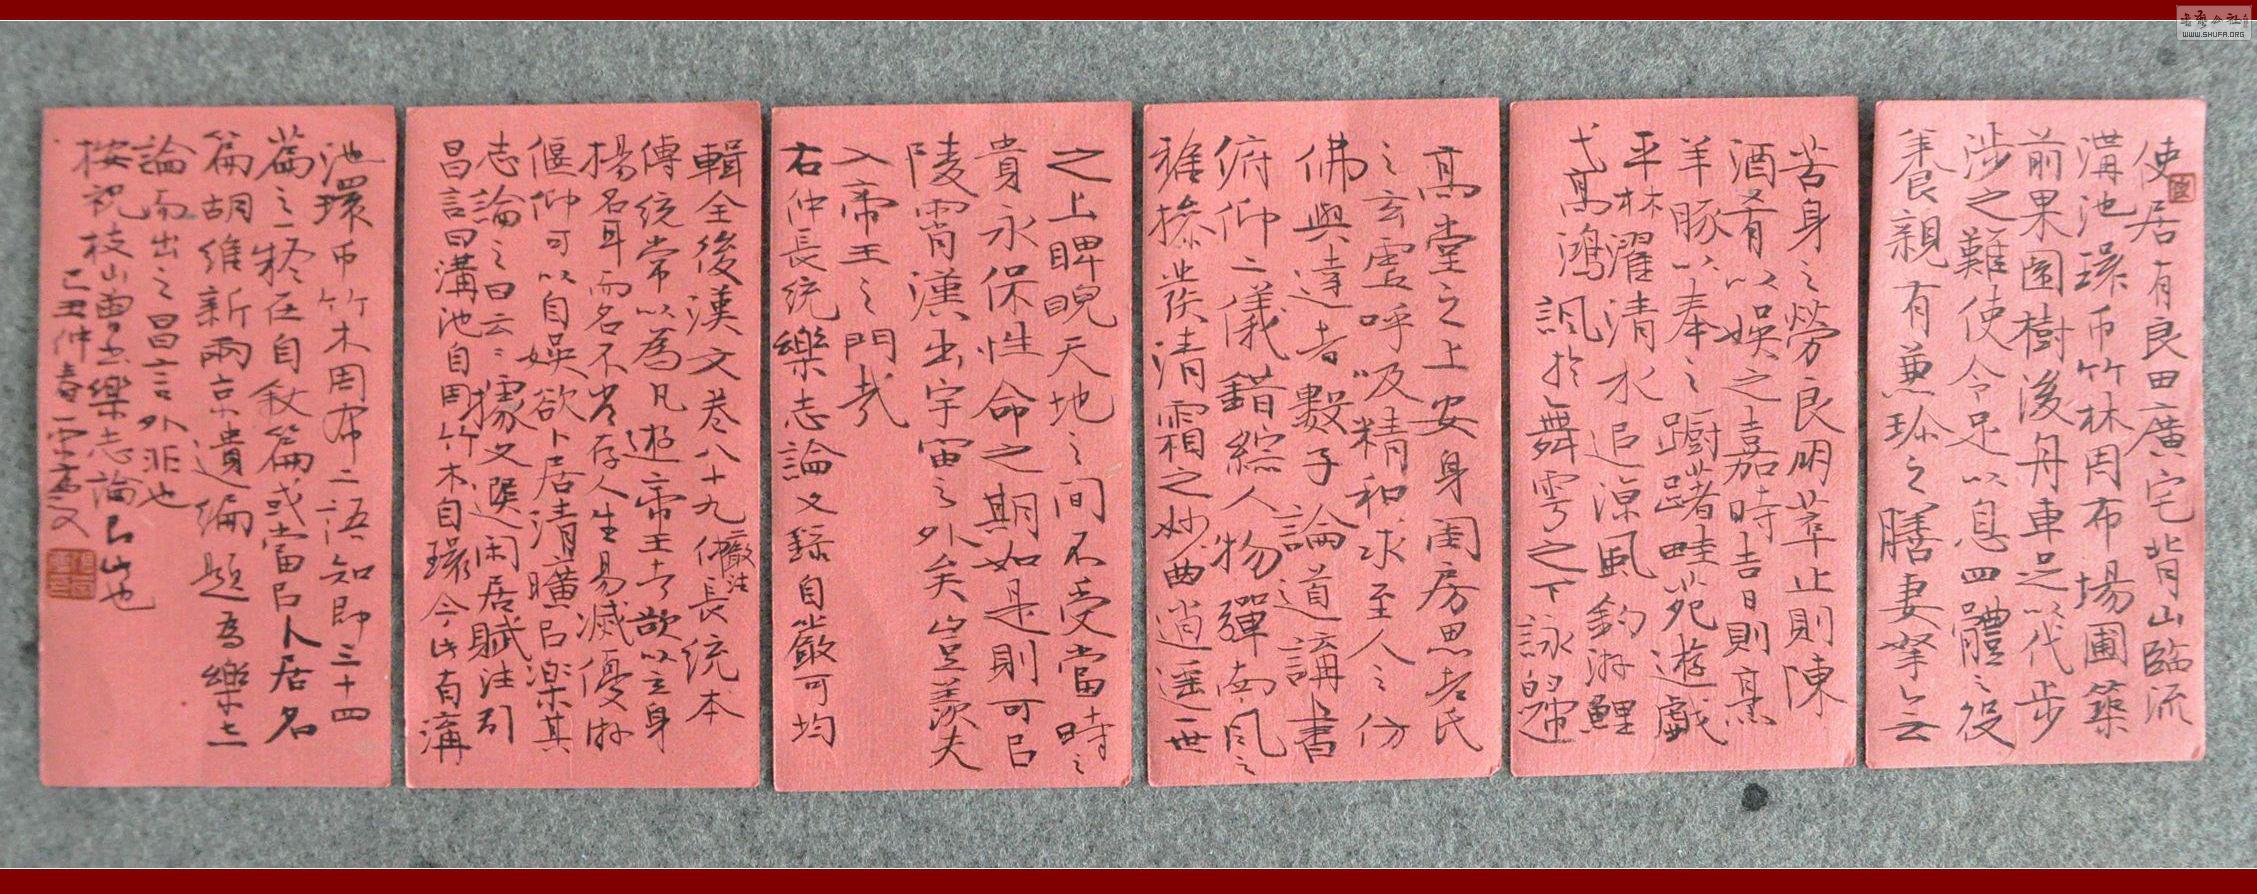 使居有良田廣宅背山臨流
溝池環帀竹林周布場圃築
前果園樹後舟車足以代步
涉之難使令足以息四體之役
養親有兼珍之膳妻孥亡
苦身之勞良朋萃止則陳
酒肴以娛之嘉時吉日則烹
羊豚以奉之躕躇畦苑遊戲
平林濯清水追涼風釣游鯉
弋高鴻諷於舞雩之下詠歸
高堂之上安身閨房思老氏
之玄虛呼吸精和求至人之仿
佛與達者數子論道講書
俯仰二儀錯綜人物彈南風之
雅操發清霜之妙曲逍遥世
之上睥睨天地之间不受當時之
貴永保性命之期如是則可㠯
陵霄漢出宇宙之外矣豈羨夫
入帝王之門哉
右仲長統樂志論又錄自嚴可均
輯全後漢文卷八十九仲長統本
傅統常以為凡遊帝王者欲以立身
揚名耳而名不常存人生易滅優游
偃仰可以自娱欲卜居清曠㠯樂其
志論之曰云云據文選闲居賦注引
昌言曰溝池自周竹木自環今此有溝
池環帀竹木周布二語知即三十四
篇之一終在自敘篇或當㠯卜居名
篇胡維新兩京遺編題為樂志
論而出之昌言外非也
按祝枝山曹書樂志論㠯此也
己丑仲春
WWW.SHUFA.ORG